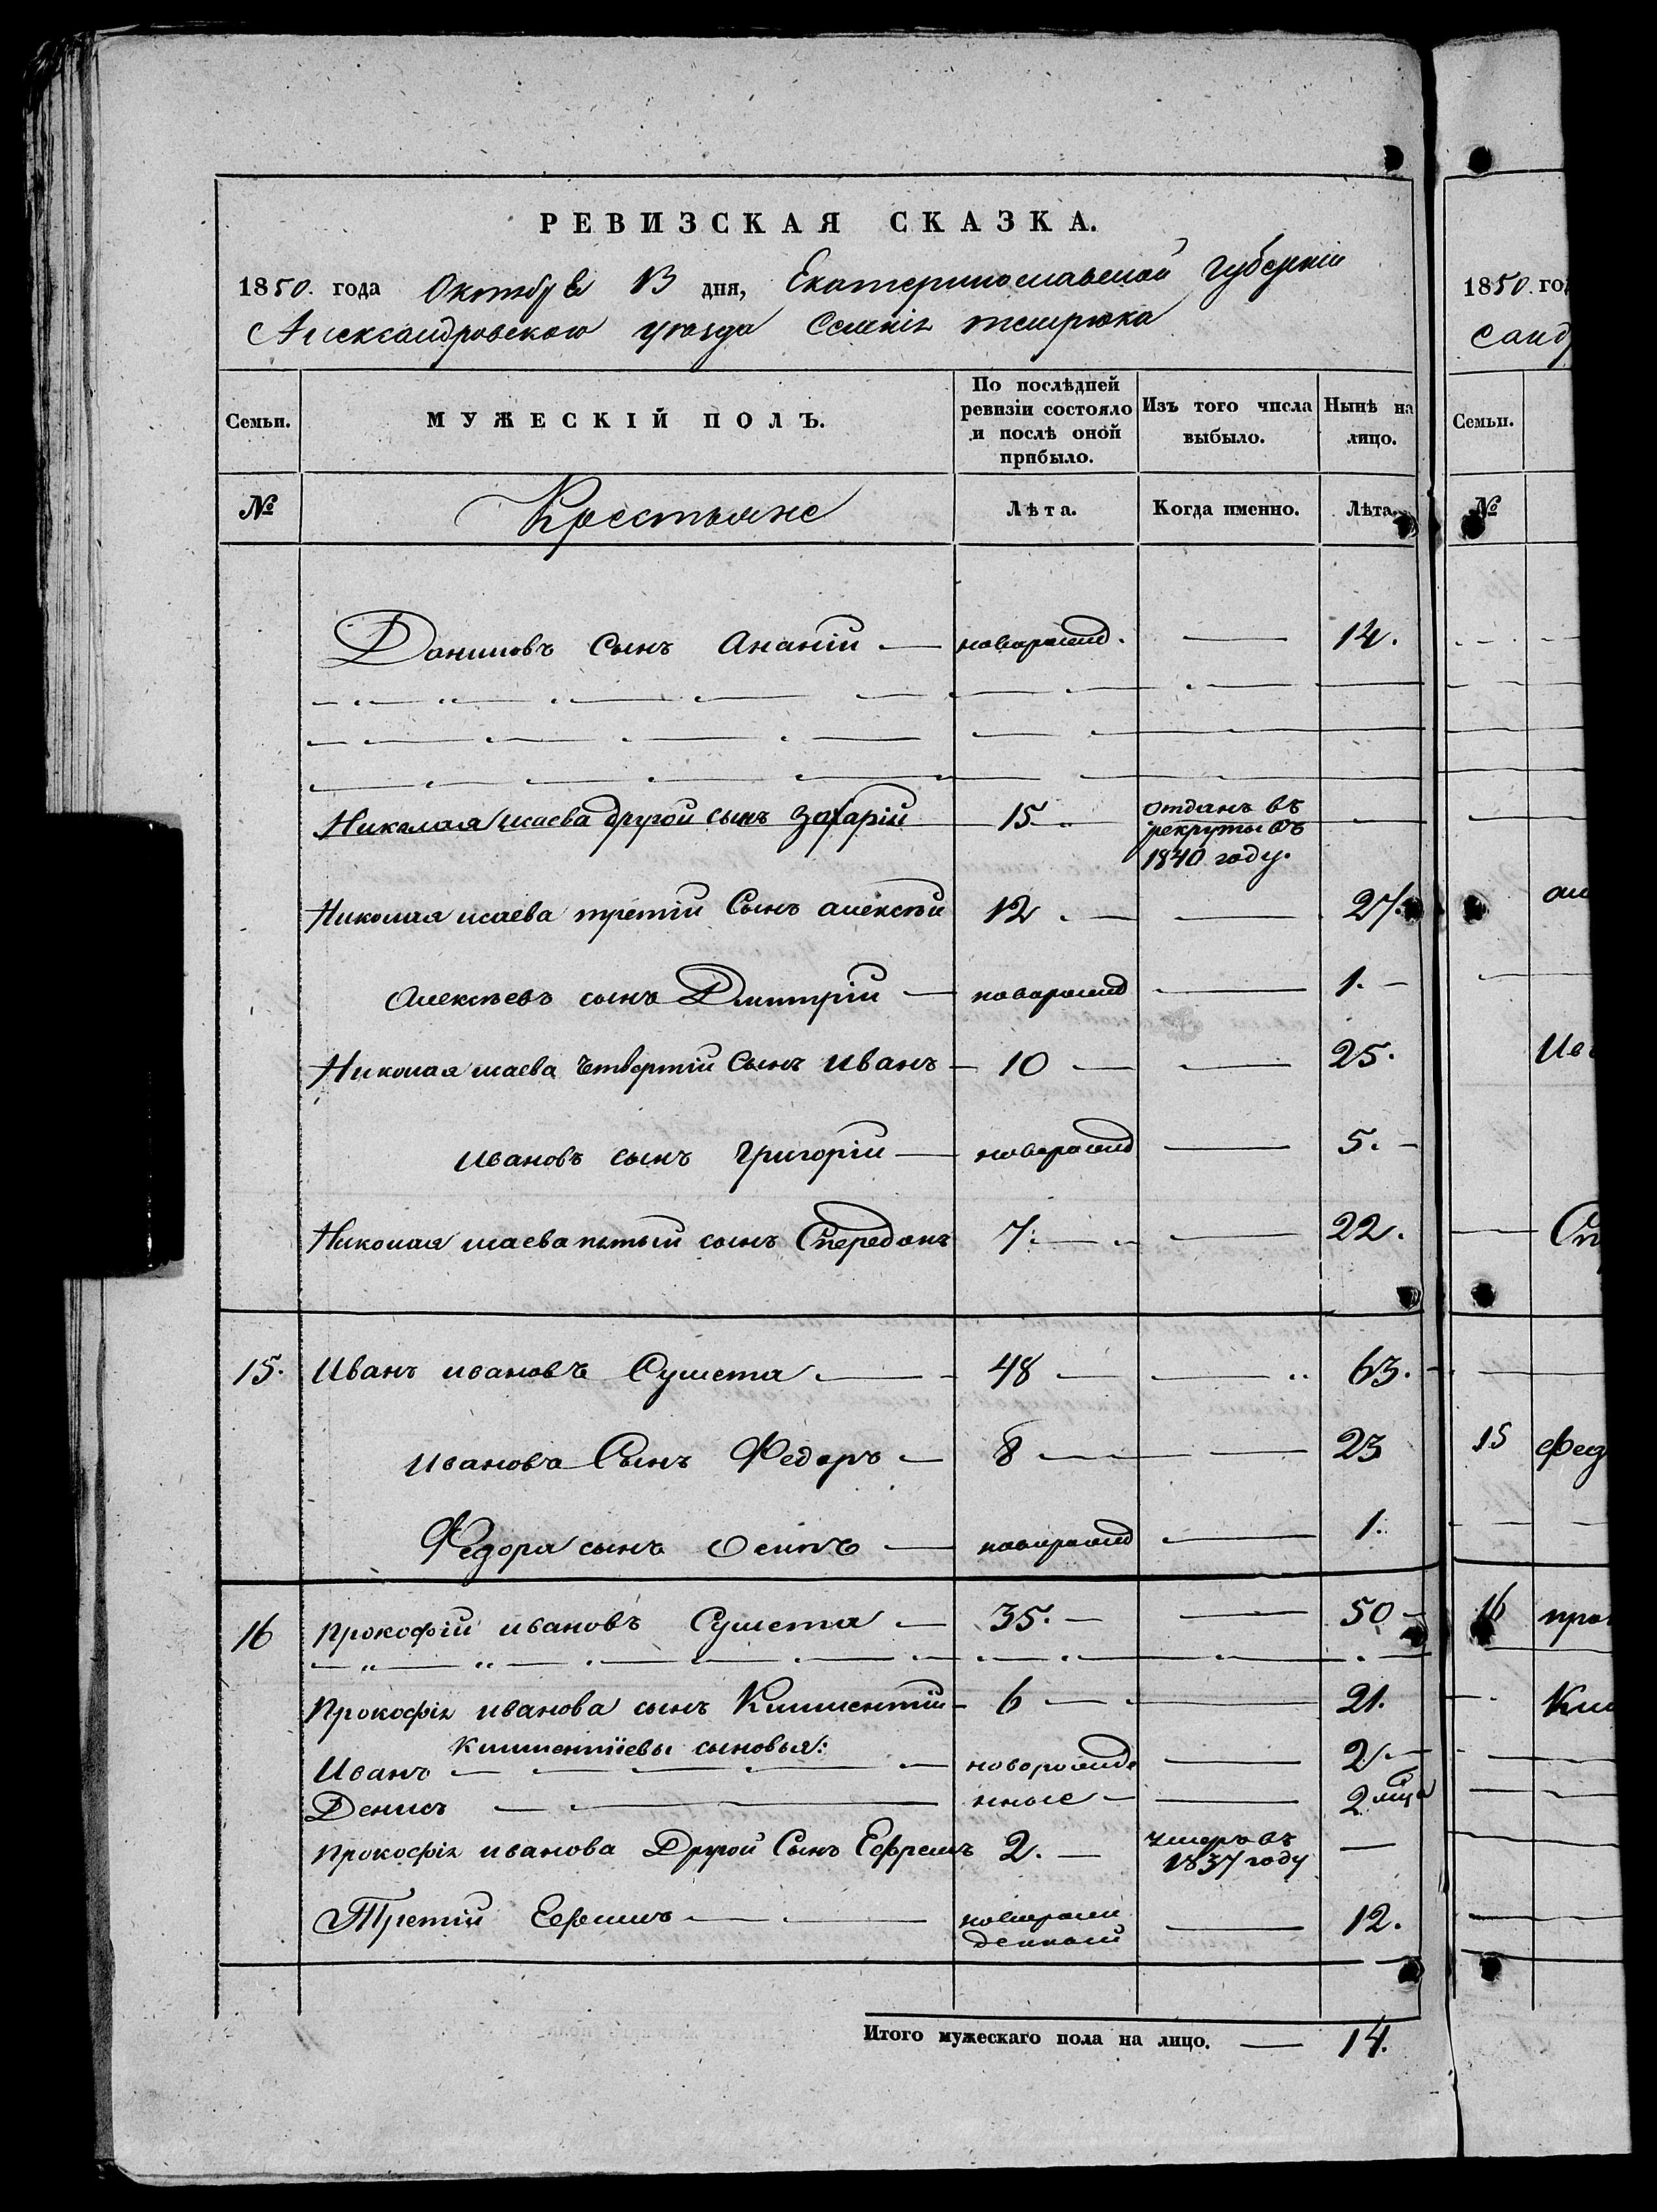 РЕВИЗСКАЯ СКАЗКА.
1850. года Октября 13 дня, Екатеринославской Губерніи
Александровского уѣзда Селенія темрюка
Семьи. МУЖЕСКІЙ ПОЛЪ. По послѣдней ревизіи состояло и послѣ оной прибыло. Изъ того числа выбыло. Нынѣ на лицо.
№ Крестьяне Лѣта. Когда именно. Лѣта.
Даниловъ сынъ Ананій — новорожд. — 14.
Николая исаева другой сынъ Захарій 15 отданъ въ рекруты въ 1840 году. —
Николая исаева третій Сынъ алексѣй 12 — 27.
Алексѣевъ сынъ Дмитрій — новорожд — 1.
Николая исаева четвертій Сынъ иванъ — 10 — 25.
ивановъ сынъ григорій — новорожд — 5.
Николая исаева пятый сынъ Спередонъ 7. — 22.
15. Иванъ ивановъ Сушета — 48 — 63.
иванова Сынъ Федоръ — 8 — 23
Федора сынъ Осипъ — новорожд — 1.
16 прокофій ивановъ Сушета — 35. — 50
прокофія иванова сынъ Климентій — 6 — 21.
Климентіевы сыновья:
Иванъ — новорожде — 2
Денисъ — нные — 2
прокофія иванова Другой Сынъ Ефремъ 2. — умеръ въ 1837 году —
Третій Ефимъ — новорожденный — 12.
Итого мужескаго пола на лицо. — 14.
1850. го
санд
Семьи.
№
ал
Ив
Сп
15 Фед
16 про
Кли